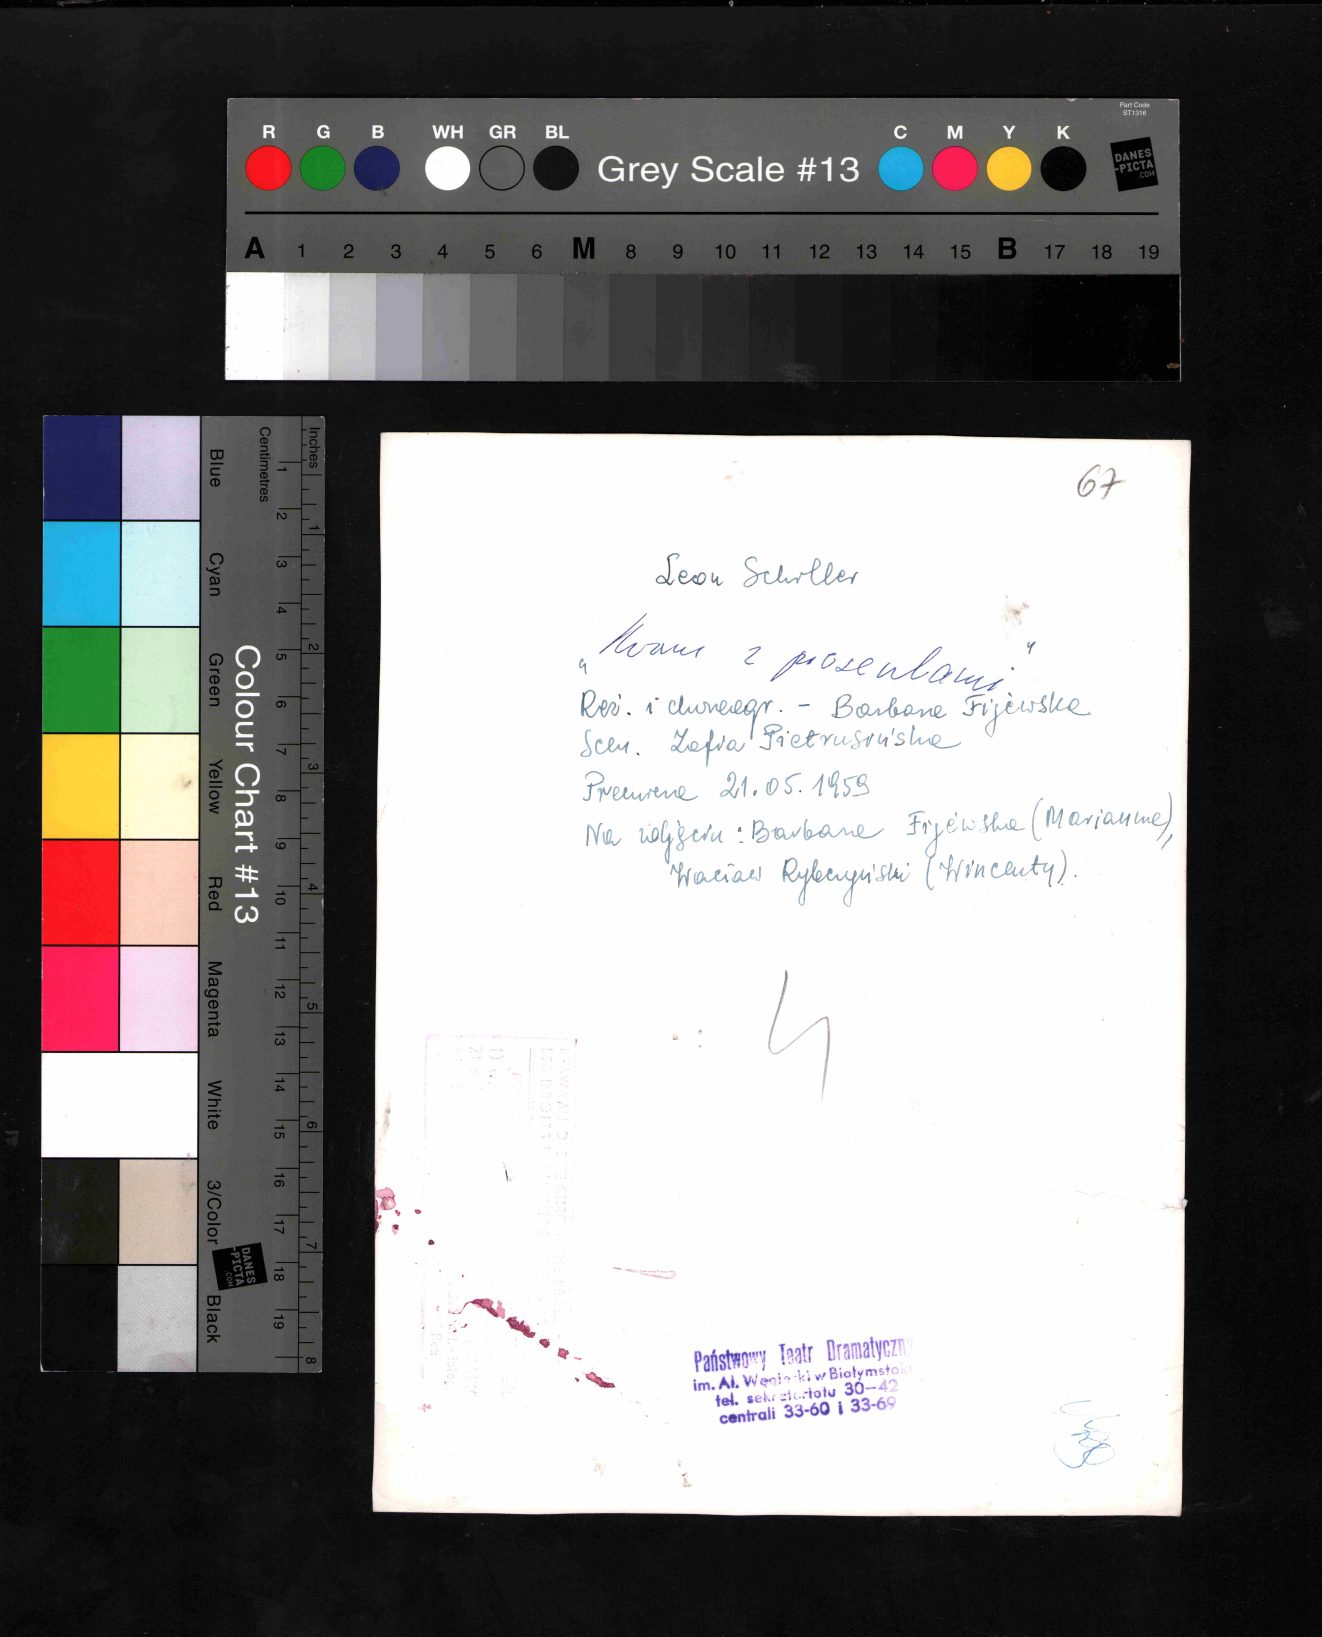 Part Code
ST1316
R G B WH GR BL Grey Scale #13 C M Y K
DANES
-PICTA
.COM
A 1 2 3 4 5 6 M 8 9 10 11 12 13 14 15 B 17 18 19
Colour Chart #13
Blue Cyan Green Yellow Red Magenta White 3/Color Black
Centimetres 1 2 3 4 5 6 7 8 9 10 11 12 13 14 15 16 17 18 19
Inches 1 2 3 4 5 6 7 8
DANES
-PICTA
.COM
67
Leon Schiller
„Kram z piosenkami"
Reż. i choreogr. - Barbara Fijewska
Scen. Zofia Pietrusińska
Premiera 21.05.1959
Na zdjęciu: Barbara Fijewska (Marianna),
Wacław Rybczyński (Wincenty).
Państwowy Teatr Dramatyczn
im. Al. Węgierki w Białymstoku
tel. sekretariatu 30-42
centrali 33-60 i 33-69